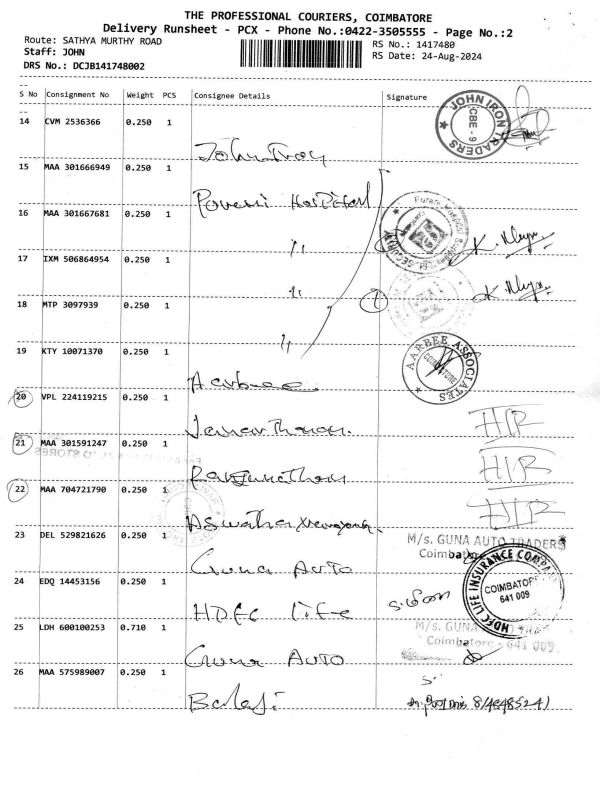 THE PROFESSIONAL COURIERS, COIMBATORE
Delivery Runsheet - PCX - Phone No.:0422-3505555 - Page No.:2
Route: SATHYA MURTHY ROAD
RS No.: 1417480
Staff: JOHN
RS Date: 24-Aug-2024
DRS No.: DCJB141748002
S No Consignment No Weight PCS Consignee Details Signature
14 CVM 2536366 0.250 1
JOHN IRON TRADERS
CBE - 9
15 MAA 301666949 0.250 1
Hospital
16 MAA 301667681 0.250 1
"
17 IXM 506864954 0.250 1
"
18 MTP 3097939 0.250 1
"
19 KTY 10071370 0.250 1
AARBEE ASSOCIATES
COIMBATORE
20 VPL 224119215 0.250 1
21 MAA 301591247 0.250 1
22 MAA 704721790 0.250 1
23 DEL 529821626 0.250 1
Guna Auto
M/s. GUNA AUTO TRADERS
Coimbatore
24 EDQ 14453156 0.250 1
HDFC Life
HDFC LIFE INSURANCE COMPANY
COIMBATORE
641 009
25 LDH 600100253 0.710 1
Guna Auto
M/s. GUNA AUTO TRADERS
Coimbatore - 641 009
26 MAA 575989007 0.250 1
Balaji